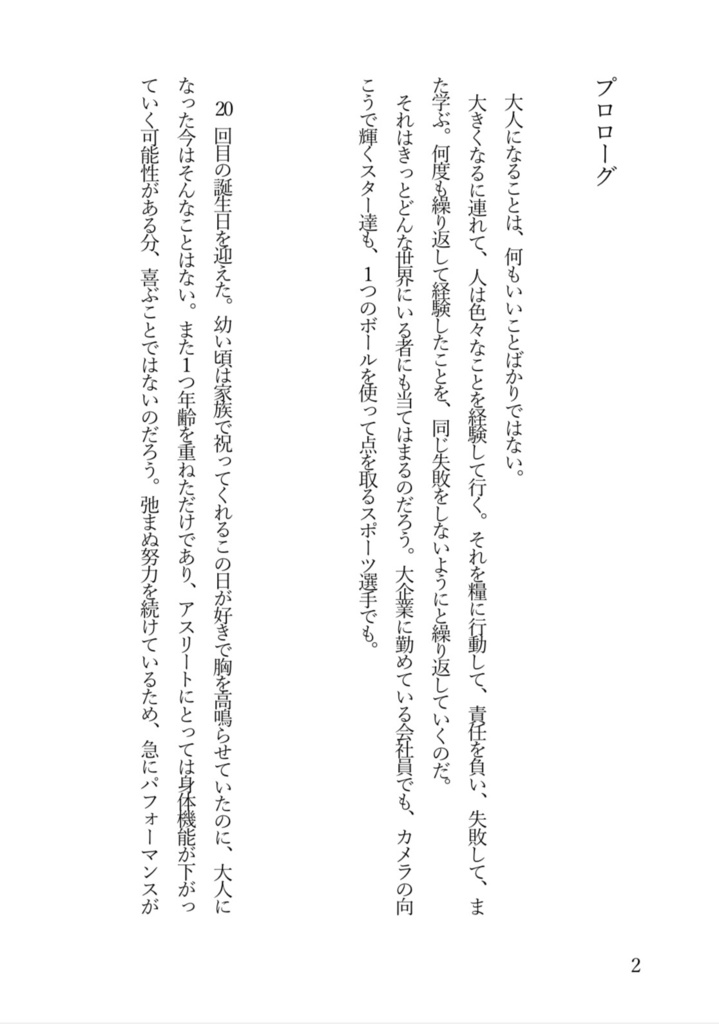 プロローグ
大人になることは、何もいいことばかりではない。
大きくなるに連れて、人は色々なことを経験して行く。それを糧に行動して、責任を負い、失敗して、ま
た学ぶ。何度も繰り返して経験したことを、同じ失敗をしないようにと繰り返していくのだ。
それはきっとどんな世界にいる者にも当てはまるのだろう。大企業に勤めている会社員でも、カメラの向
こうで輝くスター達も、1つのボールを使って点を取るスポーツ選手でも。
20回目の誕生日を迎えた。幼い頃は家族で祝ってくれるこの日が好きで胸を高鳴らせていたのに、大人に
なった今はそんなことはない。また1つ年齢を重ねただけであり、アスリートにとっては身体機能が下がっ
ていく可能性がある分、喜ぶことではないのだろう。弛まぬ努力を続けているため、急にパフォーマンスが
2